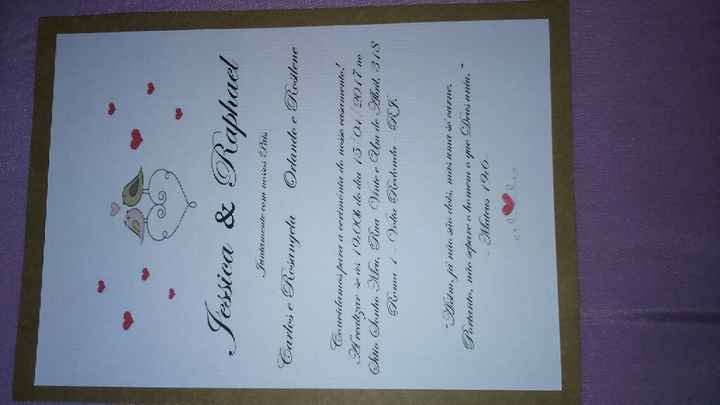 Jéssica & Raphael
Juntamente com nossos Pais
Carlos e Rosangela Orlando e Rosilene
Convidamos para a cerimônia do nosso casamento!
A realizar-se às 19:00h do dia 15/04/2017 no
Sítio Sonho Meu, Rua Vinte e Um de Abril, 318
Roma 1 - Volta Redonda - RJ.
"Assim, já não são dois, mas uma só carne.
Portanto, não separe o homem o que Deus uniu."
- Mateus 19:6 -